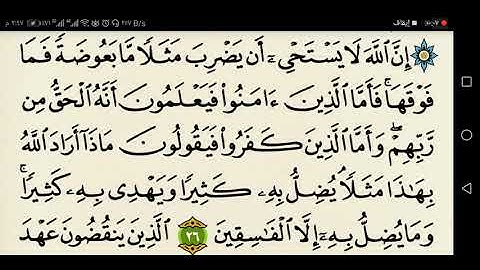 ۲۱۷ B/s
إيقاف
إِنَّ ٱللَّهَ لَا يَسْتَحْيِۦٓ أَن يَضْرِبَ مَثَلًا مَّا بَعُوضَةً فَمَا
فَوْقَهَا ۚ فَأَمَّا ٱلَّذِينَ ءَامَنُوا۟ فَيَعْلَمُونَ أَنَّهُ ٱلْحَقُّ مِن
رَّبِّهِمْ ۖ وَأَمَّا ٱلَّذِينَ كَفَرُوا۟ فَيَقُولُونَ مَاذَآ أَرَادَ ٱللَّهُ
بِهَٰذَا مَثَلًا ۘ يُضِلُّ بِهِۦ كَثِيرًا وَيَهْدِى بِهِۦ كَثِيرًا ۚ
وَمَا يُضِلُّ بِهِۦٓ إِلَّا ٱلْفَٰسِقِينَ ٢٦ ٱلَّذِينَ يَنقُضُونَ عَهْدَ